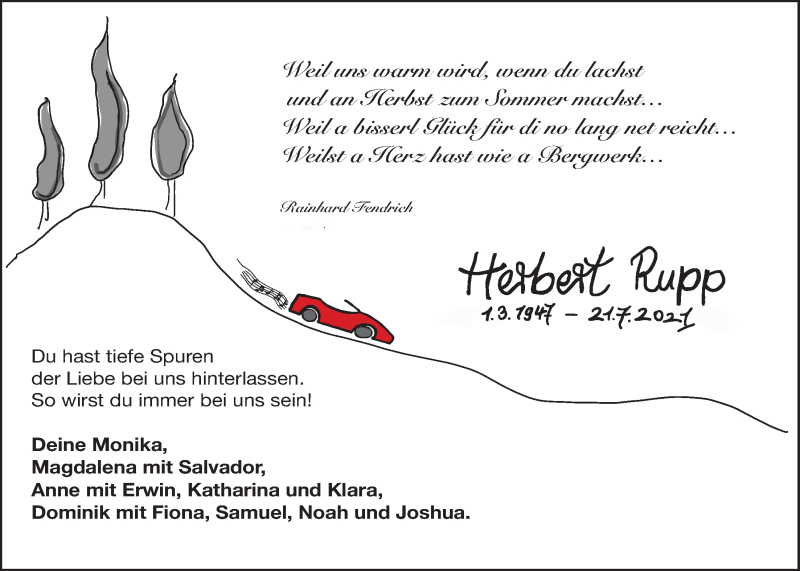 Weil uns warm wird, wenn du lachst
und an Herbst zum Sommer machst...
Weil a bisserl Glück für di no lang net reicht...
Weilst a Herz hast wie a Bergwerk...
Rainhard Fendrich
Herbert Rupp
1.3.1947 – 21.7.2021
Du hast tiefe Spuren
der Liebe bei uns hinterlassen.
So wirst du immer bei uns sein!
Deine Monika,
Magdalena mit Salvador,
Anne mit Erwin, Katharina und Klara,
Dominik mit Fiona, Samuel, Noah und Joshua.